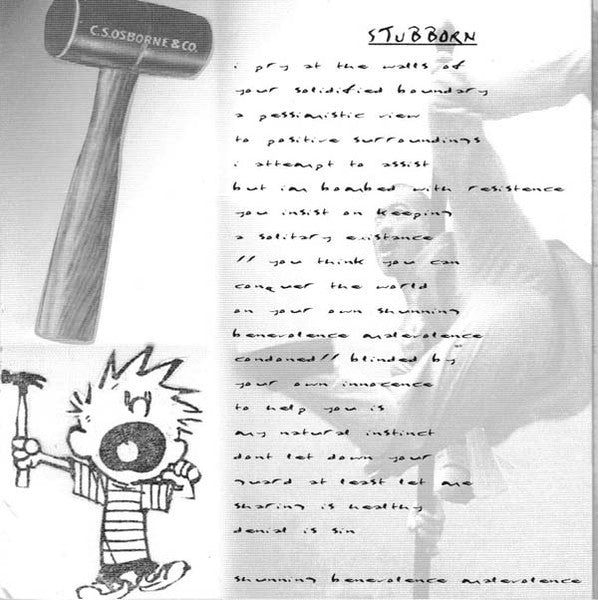 C.S.OSBORNE & CO.
STUBBORN
i pry at the walls of
your solidified boundary
a pessimistic view
to positive surroundings
i attempt to assist
but im bombed with resistence
you insist on keeping
a solitary existance
// you think you can
conquer the world
on your own shunning
benevolence malevolence
condoned // blinded by
your own innocence
to help you is
my natural instinct
dont let down your
guard at least let me
sharing is healthy
denial is sin
shunning benevolence malevolence